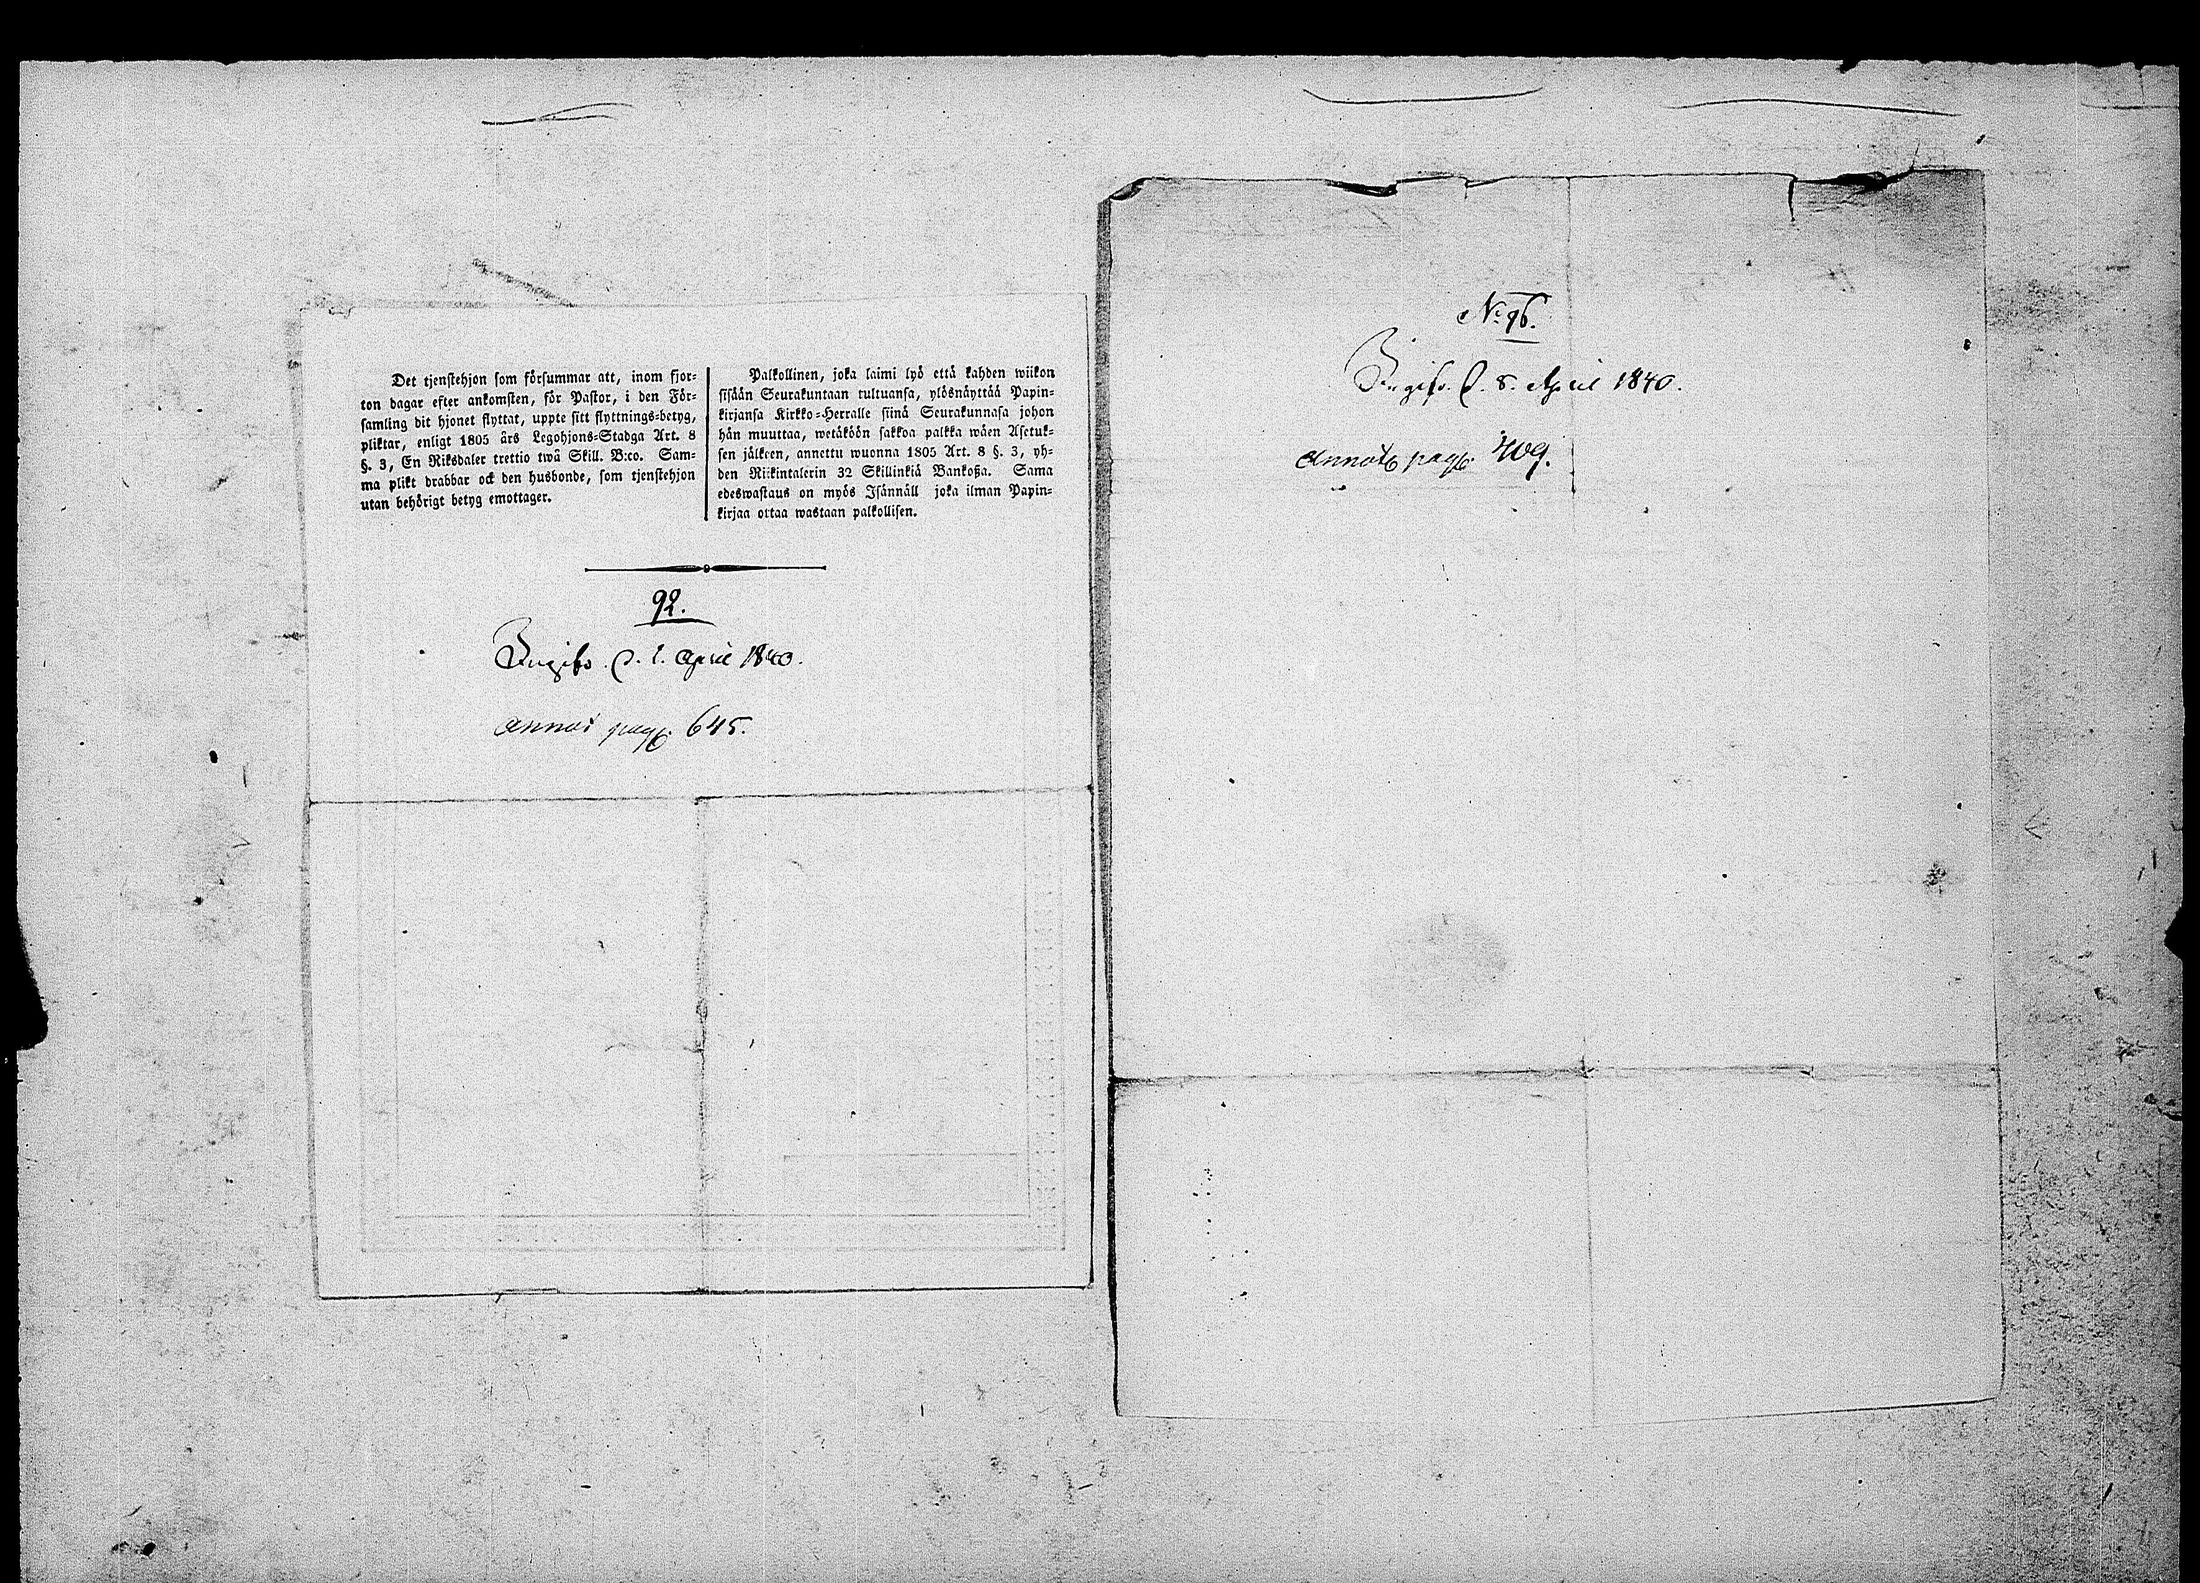 Det tjenstehjon som försummar att, inom fjor-
ton dagar efter ankomsten, för Pastor, i den För-
samling dit hjonet flyttat, uppte sitt flyttnings-betyg,
pliktar, enligt 1805 års Legohjons-Stadga Art. 8
§. 3, En Riksdaler trettio twå Skill. B:co. Sam-
ma plikt drabbar ock den husbonde, som tjenstehjon
utan behörigt betyg emottager.
Palkollinen, joka laimi lyö että kahden wiikon
sisään Seurakuntaan tultuansa, ylösnäyttää Papin-
kirjansa Kirkko-Herralle siinä Seurakunnasa johon
hän muuttaa, wetäköön sakkoa palkka wäen Asetuk-
sen jälkeen, annettu wuonna 1805 Art. 8 §. 3, yh-
den Riikintalerin 32 Skillinkiä Bankoßa. Sama
edeswastaus on myös Isännäll joka ilman Papin-
kirjaa ottaa wastaan palkollisen.
92.
Ingifv. d. 1. April 1840.
annot pag. 645.
No 96.
Ingifv. d. 8. April 1840.
annot pag. 409.